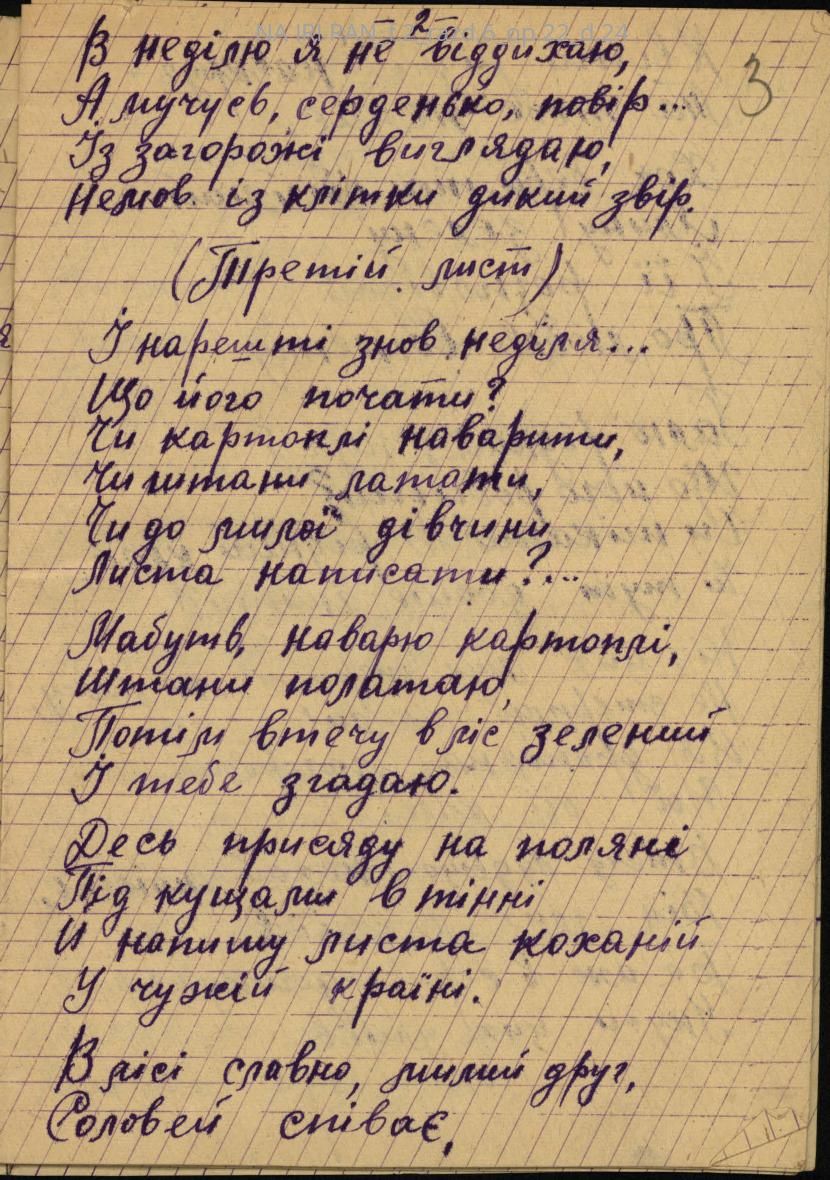 2
3
В неділю я не віддихаю,
А мучусь, серденько, повір...
Їз загорожі виглядаю,
Немов із клітки дикий звір.
(Третій лист)
І нарешті знов неділя...
Що його почати?
Чи картоплі наварити,
Чи штани латати,
Чи до милої дівчини
Листа написати?...
Мабуть, наварю картоплі,
Штани полатаю,
Потім втечу в ліс зелений
І тебе згадаю.
Десь присяду на поляні
Під кущами в тінні
И напишу листа коханій
У чужій країні.
В лісі славно, милий друг,
Соловей співає,